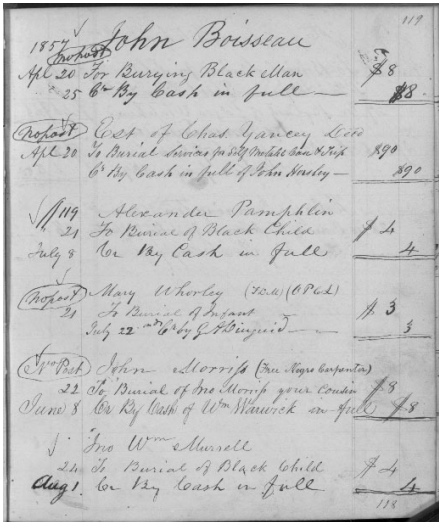 119
1857 John Boisseau
nopost
Apl 20 For Burying Black Man $8
25 Cr By Cash in full $8
nopost Est of Chas Yancey Decd
Apl 20 To Burial Services for Self Metalic Case & Trip $90
Cr By Cash in full of John Horsley $90
119 Alexander Pamphlin
21 To Burial of Black Child $4
July 8 Cr By Cash in full 4
nopost Mary Whorley
21 To Burial of Infant $3
July 22nd Cr by G A Diuguid 3
No Post John Morriss (Free Negro Carpenter)
22 To Burial of Jno Morriss your Cousin $8
June 8 Cr By Cash of Wm Warwick in full $8
Jno Wm Murrell
24 To Burial of Black Child $4
Aug 1. Cr By Cash in full 4
118